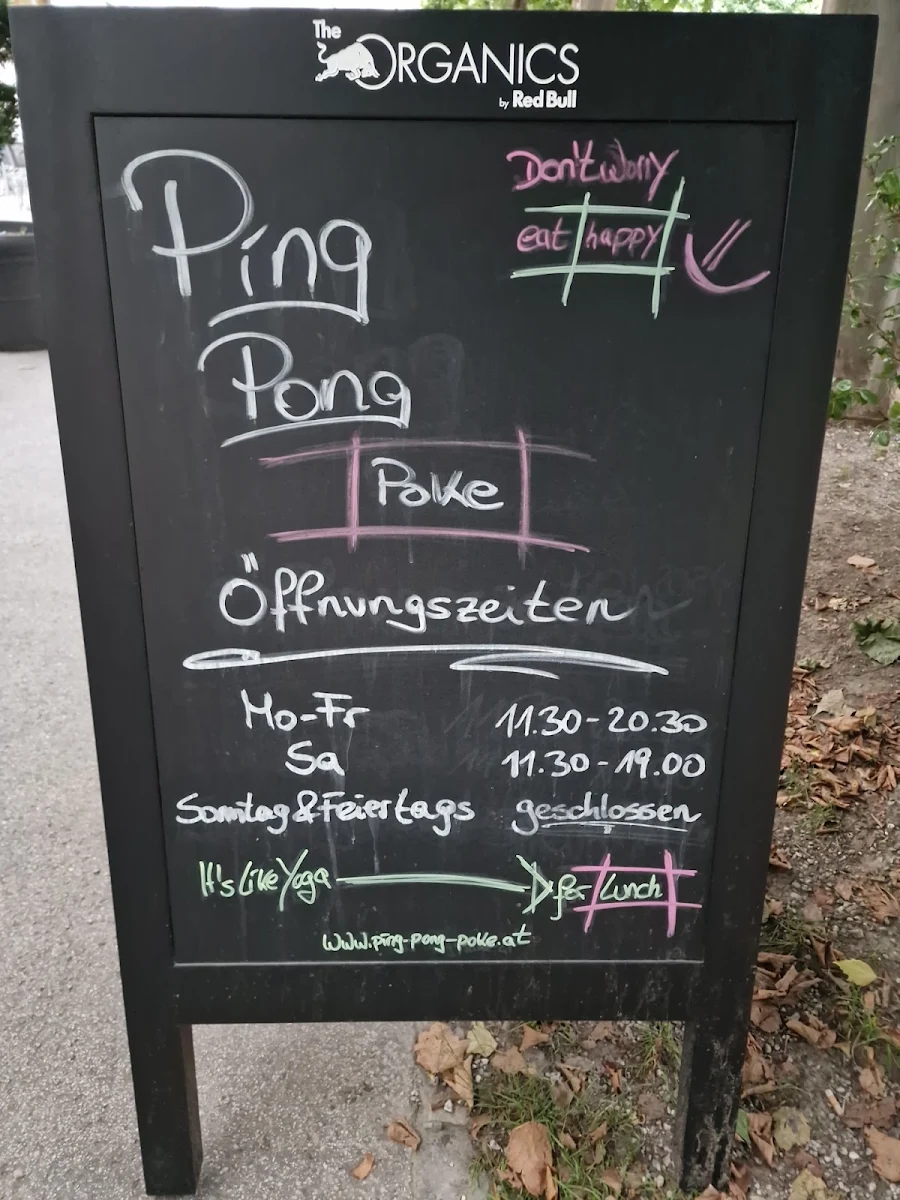 The
ORGANICS
by Red Bull
Ping
Pong
Poke
Don't worry
eat happy
Öffnungszeiten
Mo-Fr 11.30-20.30
Sa 11.30-19.00
Sonntag & Feiertags geschlossen
It's like Yoga for Lunch
www.ping-pong-poke.at